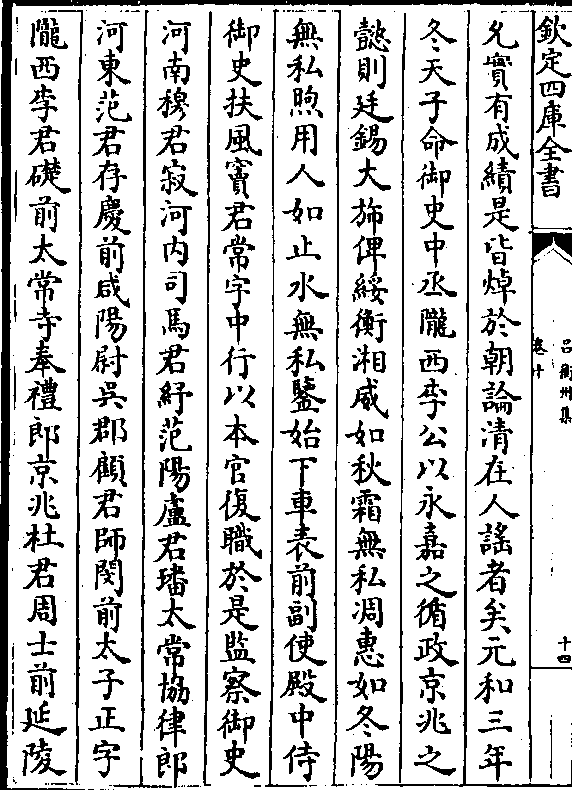 欽定四庫全書
呂衡州集
卷十
十四
允實有成績是皆焯於朝論清在人謠者矣元和三年
冬天子命御史中丞隴西李公以永嘉之循政京兆之
懿則廷錫大斾俾綏衡湘威如秋霜無私凋惠如冬陽
無私煦用人如止水無私鑒始下車表前副使殿中侍
御史扶風竇君常字中行以本官復職於是監察御史
河南穆君寂河內司馬君紓范陽盧君璠太常協律郎
河東范君存慶前咸陽尉吳郡顧君師閔前太子正字
隴西李君礎前太常寺奉禮郎京兆杜君周士前延陵